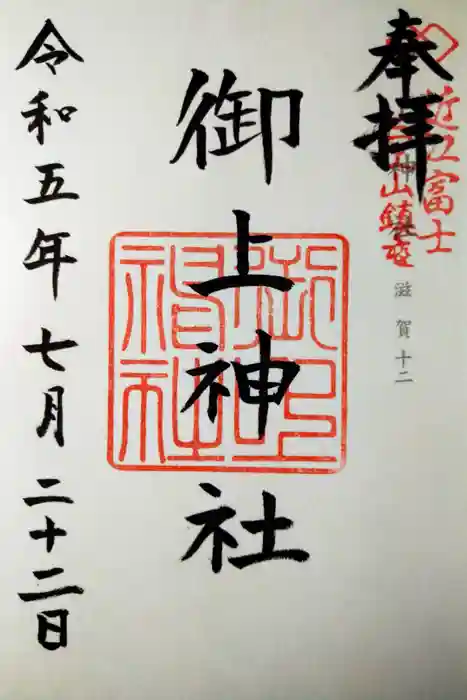 奉拝
近江富士
山鎮座
神
滋賀十二
御上神社
令和五年七月二十二日